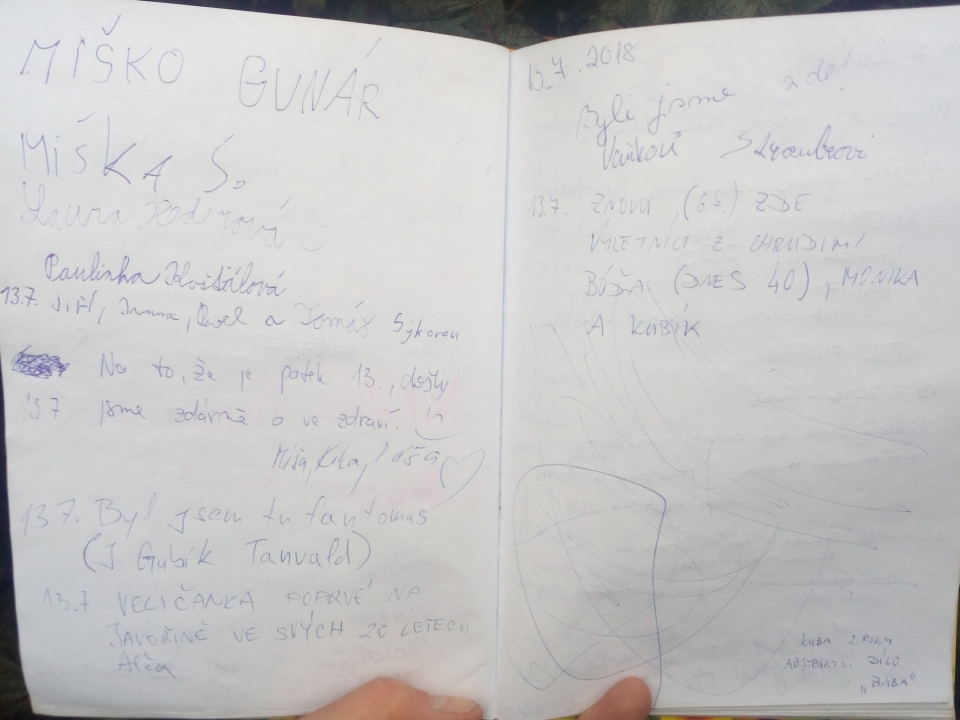 MIŠKO GUNÁR
MiŠKA S.
Laura
Paulinka Hoštálová
13.7. Jiří, Ivana, Pavel a Tomáš Sýkorovi
Na to, že je pátek 13., došly
13.7 jsme zdárně a ve zdraví.
Míša, Kika,
13.7. Byl jsem tu fantomas
(J. Gubik Tanvald)
13.7 VELIČANKA POPRVÉ NA
JAVOŘINĚ VE SVÝCH 20 LETECH
Alča
13.7. 2018
Byli jsme zde!
Vaňkovi
13.7. ZNOVU (6x.) ZDE
VÝLETNÍCI Z CHRUDIMI
BÓĎA (DNES 40), MONIKA
A KUBÍK
KUBA 2 ROKY
ABSTRAKTNÍ DÍLO
„BABA"